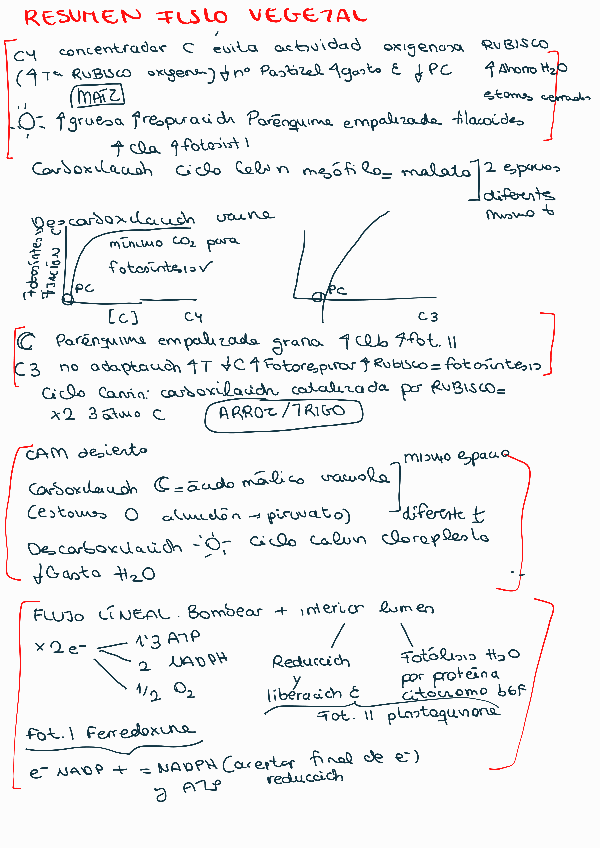 RESUMEN FISIO VEGETAL
C4 concentrador C évita actividad oxigenasa RUBISCO
(↑Tª RUBISCO oxigena) ↓nº Pastizal ↑gasto E ↓PC ↑Ahorro H2O
MAÍZ estomas cerrados
↑gruesa ↑respiración Parénquima empalizada tilacoides
↑cla ↑fotosist I
Carboxilación ciclo Calvin mesófilo = malato 2 espacios
diferente
mismo t
Descarboxilación vaina
Fotosíntesis
FIJACIÓN C
mínimo CO2 para
fotosíntesis ✓
PC
[C] C4
PC
C3
C Parénquima empalizada grana ↑Clb ↑fot. II
C3 no adaptación ↑T ↓C ↑Fotorespirar ↑RUBISCO = fotosíntesis
Ciclo Calvin: carboxilación catalizada por RUBISCO =
x2 3 átomo C ARROZ/TRIGO
CAM desierto mismo espacio
Carboxilación C = ácido málico vacuola
(estomas O almidón → piruvato) diferente t
Descarboxilación -O- Ciclo Calvin cloroplasto
↓Gasto H2O
FLUJO LÍNEAL. Bombear + interior lumen
x2e- 1'3 ATP
2 NADPH
1/2 O2
Reducción
y
liberación E
Fotólisis H2O
por proteína
citocromo b6F
Fot. II plastoquinona
Fot. I Ferredoxina
e- NADP + = NADPH (aceptor final de e-)
y ATP reducción